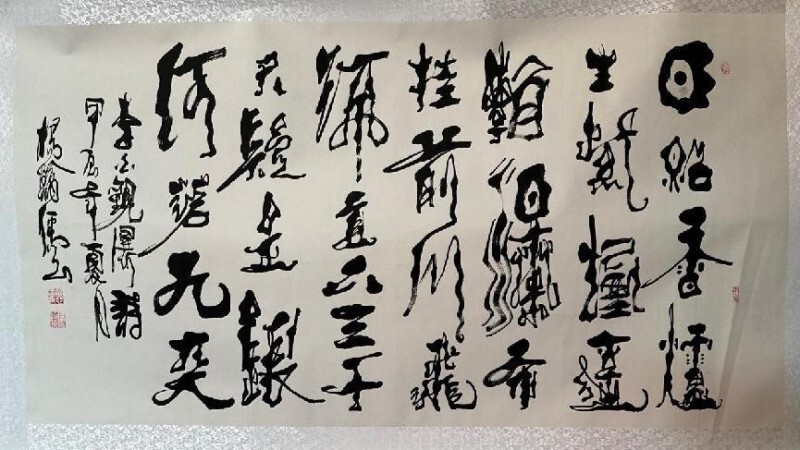 日照香爐
生紫煙遥
看瀑布
掛前川飛
流直下三千
尺疑是銀
河落九天
李白觀瀑詩
甲辰年夏月